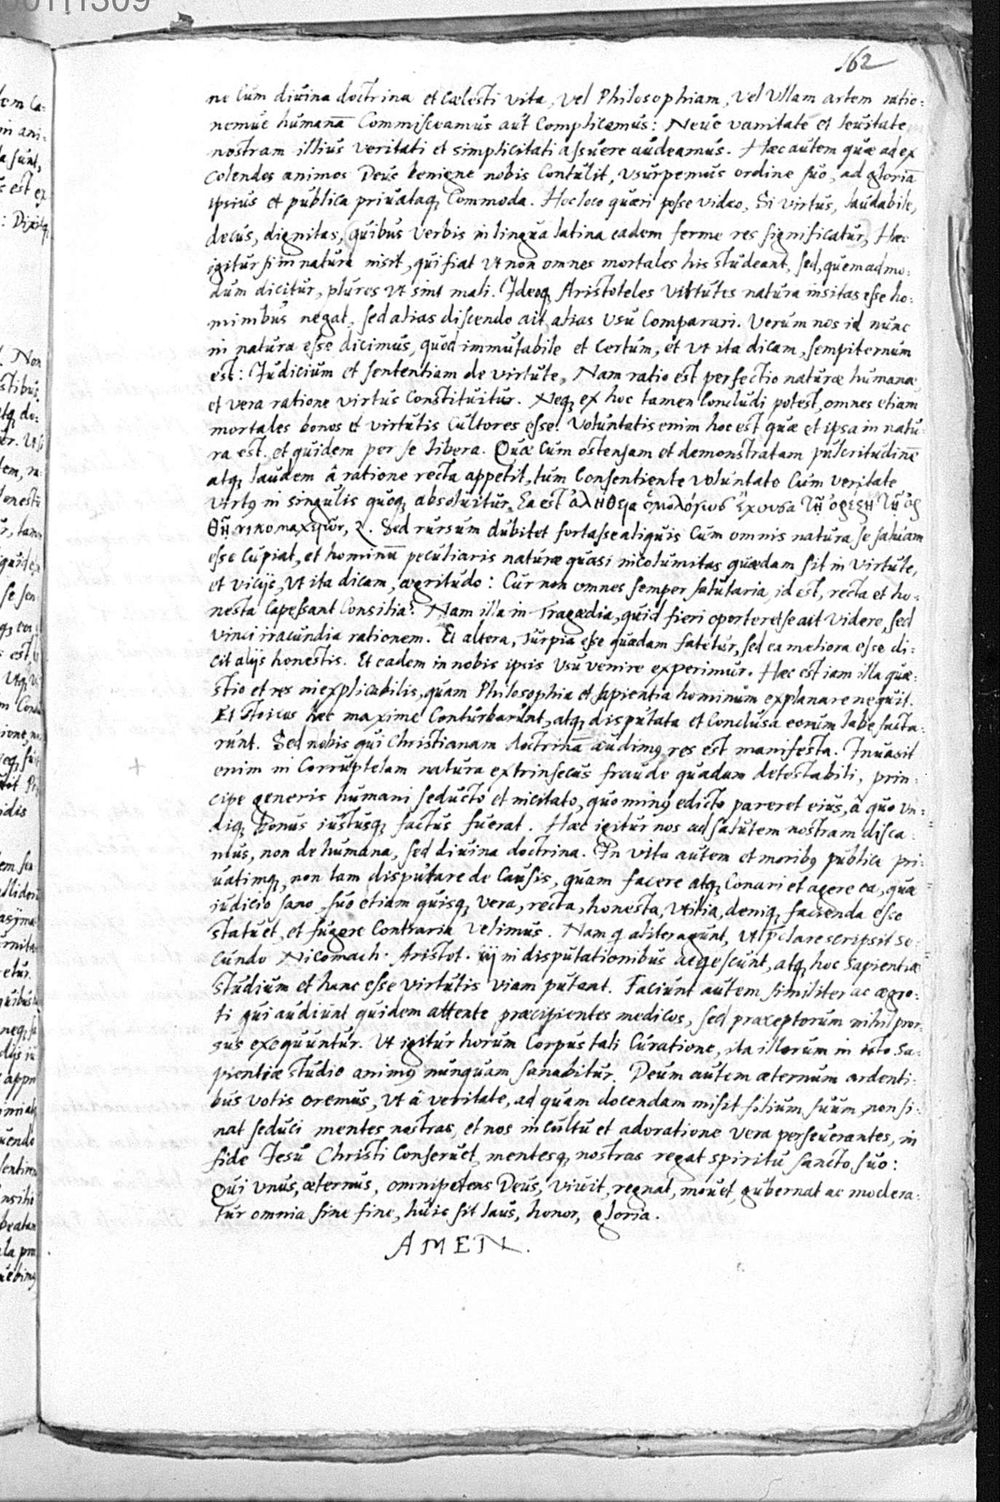 162
ne cum diuina doctrina et cælesti vita, vel Philosophiam, vel vllam artem ratio-
nemue humanā commisceamus aut complicemus: Neue vanitatē et leuitatē
nostram illius veritati et simplicitati assuere audeamus. Hæc autem quæ ad ex
colendos animos Deus benigne nobis contulit, vsurpemus ordine suo, ad gloriā
ipsius et publica priuataq; commoda. Hoc loco quæri posse video, Si virtus, laudabile,
decus, dignitas, quibus verbis in lingua latina eadem ferme res significatur, Hæc
igitur si in natura insit, qui fiat vt non omnes mortales his studeant, sed, quemadmo-
dum dicitur, plures vt sint mali. Ideoq; Aristoteles virtutes natura insitas esse ho-
minibus negat, sed alias discendo ait, alias vsu comparari. Verum nos id nunc
in natura esse dicimus, quod immutabile et certum, et vt ita dicam, sempiternum
est: Iudicium et sententiam de virtute. Nam ratio est perfectio naturæ humanæ
et vera ratione virtus constituitur. Neq; ex hoc tamen concludi potest, omnes etiam
mortales bonos et virtutis cultores esse. Voluntatis enim hoc est quæ et ipsa in natu-
ra est, et quidem per se libera. Quæ cum ostensam et demonstratam pulcritudinē
atq; laudem â ratione recta appetit, tum consentiente voluntate cum veritate
virtus in singulis quoq; absoluitur. Ea est ἀλήθεια ὁμολόγως ἔχουσα τῇ ὀρέξει τῇ ὀρ
θῇ νικομαχείων, 2. Sed rursum dubitet fortasse aliquis cum omnis natura se saluam
esse cupiat, et hominū peculiaris naturæ quasi incolumitas quædam sit in virtute,
et vicijs, vt ita dicam, ægritudo: Cur non omnes semper salutaria, id est, recta et ho-
nesta capessant consilia? Nam illa in Tragœdia, quid fieri oporteret se ait videre, sed
vinci iracundia rationem. Et altera, turpia esse quædam fatetur, sed ea meliora esse di-
cit alijs honestis. Et eadem in nobis ipsis vsu venire experimur. Hæc est iam illa quæ-
stio et res inexplicabilis, quam Philosophia et sapientia hominum explanare nequit.
Et Stoicos hæc maxime conturbarunt, atq; disputata et conclusa eorum labefacta-
runt. Sed nobis qui Christianam doctrinā audimus res est manifesta. Inuasit
+
enim in corruptelam natura extrinsecus fraude quadam detestabili, prin-
cipe generis humani seducto et incitato, quo minus edicto pareret eius, â quo vn-
diq; bonus iustusq; factus fuerat. Hæc igitur nos ad salutem nostram disca-
mus, non de humana, sed diuina doctrina. In vita autem et moribus publice pri-
uatimq;, non tam disputare de causis, quam facere atq; conari et agere ea, quæ
iudicio sano, suo etiam quisq; vera, recta, honesta, vtilia, deniq; facienda esse
statuet, et fugere contraria velimus. Nam q̃ aliter agunt, vt p̃clare scripsit se-
cundo Nicomach. Aristot. ij in disputationibus acquiescunt, atq; hoc sapientiæ
studium et hanc esse virtutis viam putant. Faciunt autem similiter ac ægro-
ti qui audiunt quidem attente præcipientes medicos, sed præceptorum nihil pror-
sus exequuntur. Vt igitur horum corpus tali curatione, ita illorum in isto sa-
pientiæ studio animus nunquam sanabitur. Deum autem æternum ardenti-
bus votis oremus, vt â veritate, ad quam docendam misit filium suum, non si-
nat seduci mentes nostras, et nos in cultu et adoratione vera perseuerantes, in
fide Iesu Christi conseruet, mentesq; nostras regat spiritu sancto suo:
Qui vnus, æternus, omnipotens Deus, viuit, regnat, mouet, gubernat ac modera-
tur omnia sine fine, huic sit laus, honor, gloria.
AMEN.